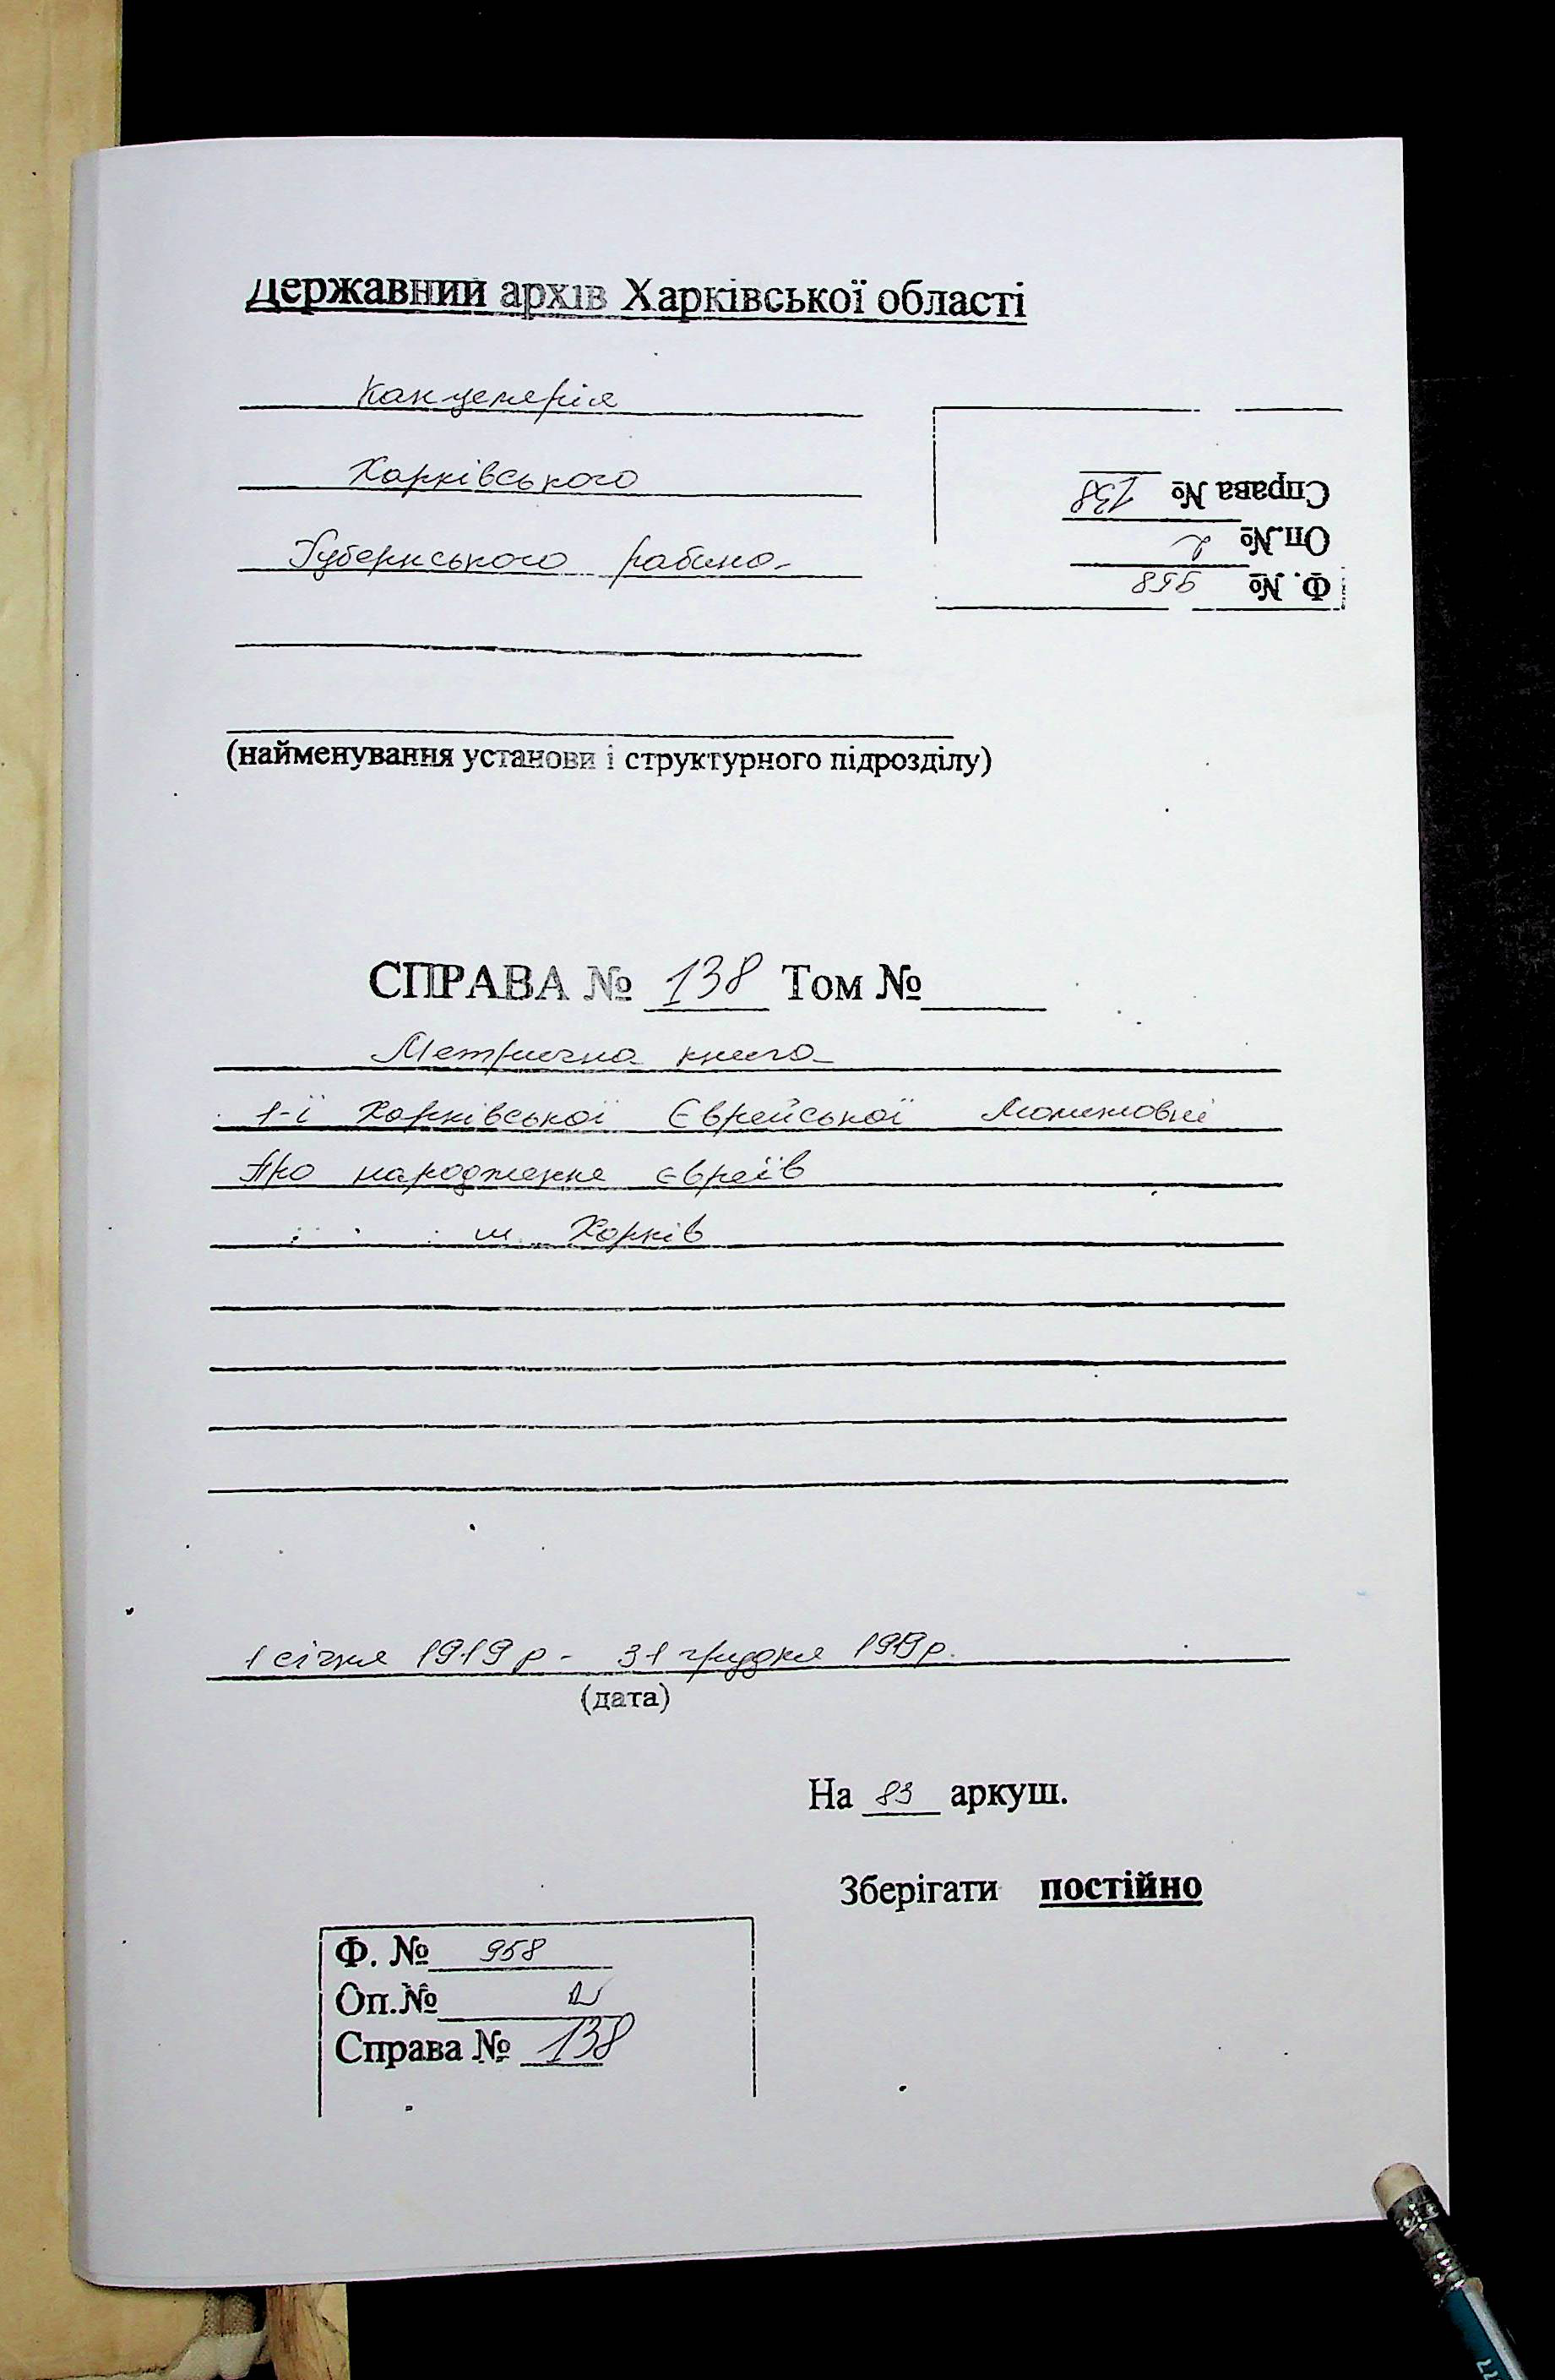 Державний архів Харківської області
Канцелярія
Харківського
Губернського рабина
Справа № 138
Оп.№ 2
Ф. № 958
(найменування установи і структурного підрозділу)
СПРАВА № 138 Том №
Метрична книга
1-ї Харківської Єврейської Молитовні
Про народження євреїв
м. Харків
1 січня 1919 р - 31 грудня 1919 р.
(дата)
На 83 аркуш.
Зберігати постійно
Ф. № 958
Оп.№ 2
Справа № 138